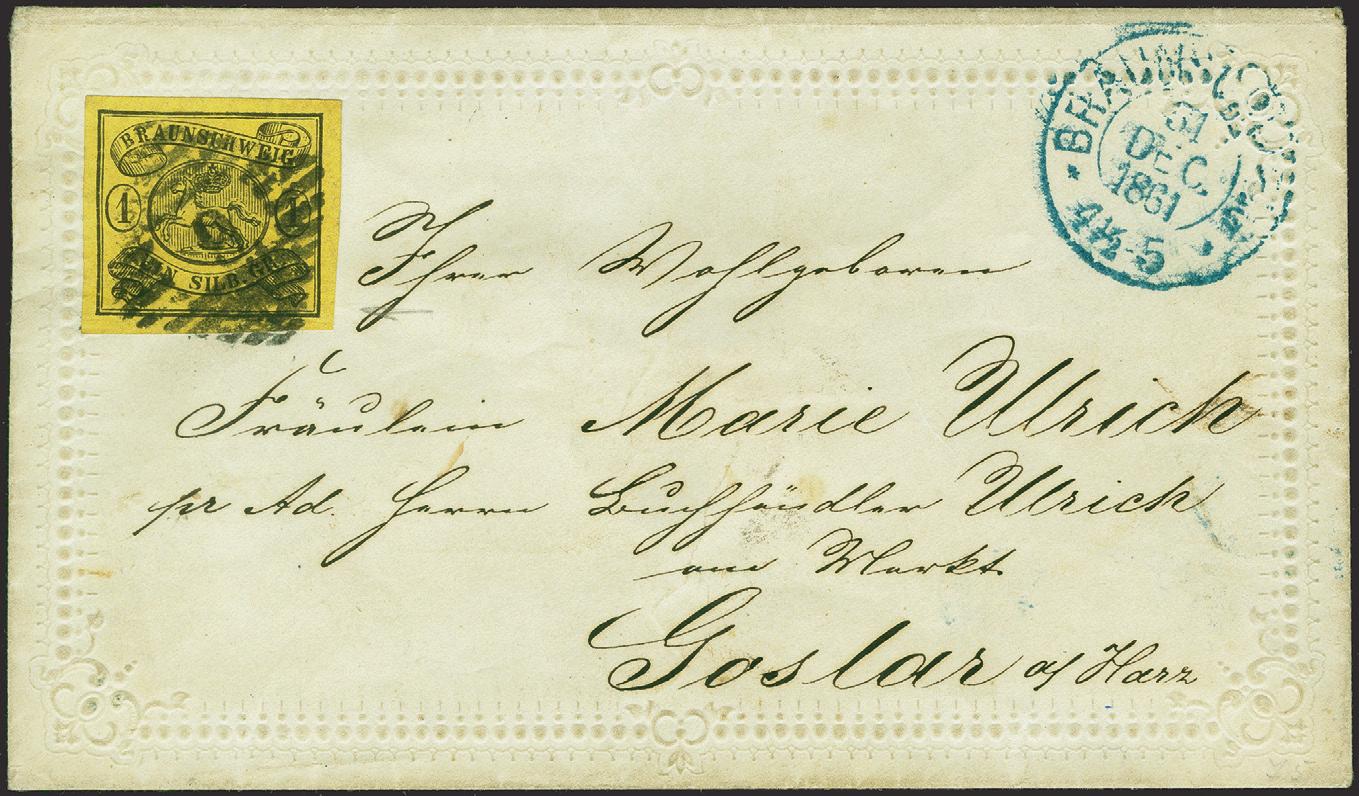 BRAUNSCHWEIG
1 1
EIN SILB. GR.
31
DEC.
1861
4½-5
Ihrer Wohlgeboren
Fräulein Marie Ulrich
pr Ad. Herrn Buchhändler Ulrich
am Markt
Goslar a/ Harz